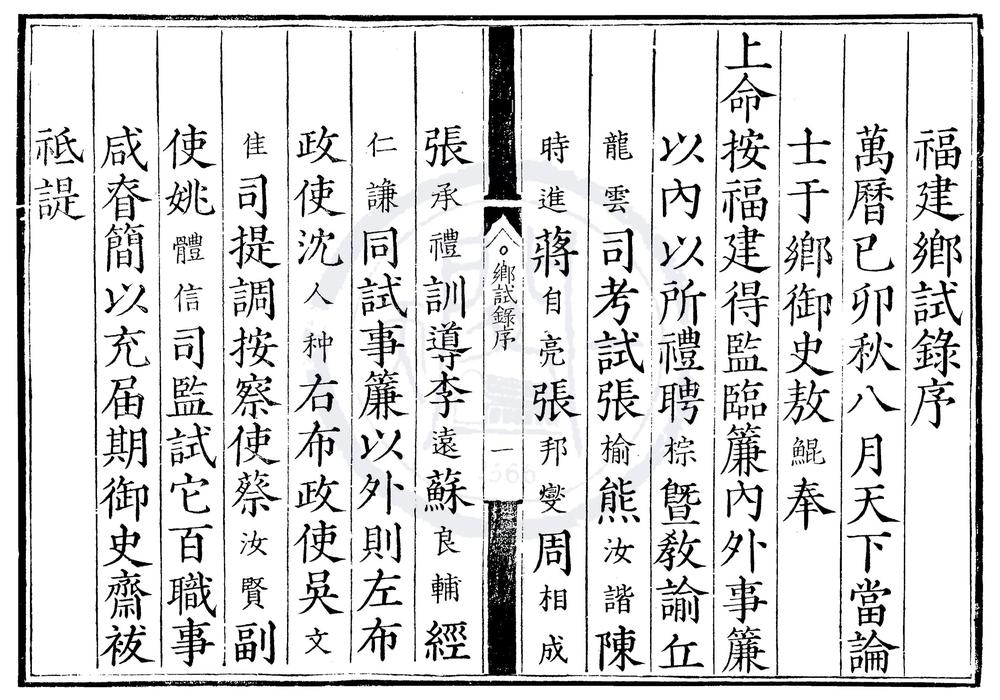 福建鄉試錄序
萬曆已卯秋八月天下當論
士于鄉御史敖鯤奉
上命按福建得監臨簾內外事簾
以內以所禮聘棕曁教諭丘
龍雲司考試張榆熊汝諧陳
時進蔣自亮張邦燮周相成
鄉試錄序
一
張承禮訓導李遠蘇良輔經
仁謙同試事簾以外則左布
政使沈人种右布政使吳文
佳司提調按察使蔡汝賢副
使姚體信司監試它百職事
咸眘簡以充届期御史齋祓
祗諟